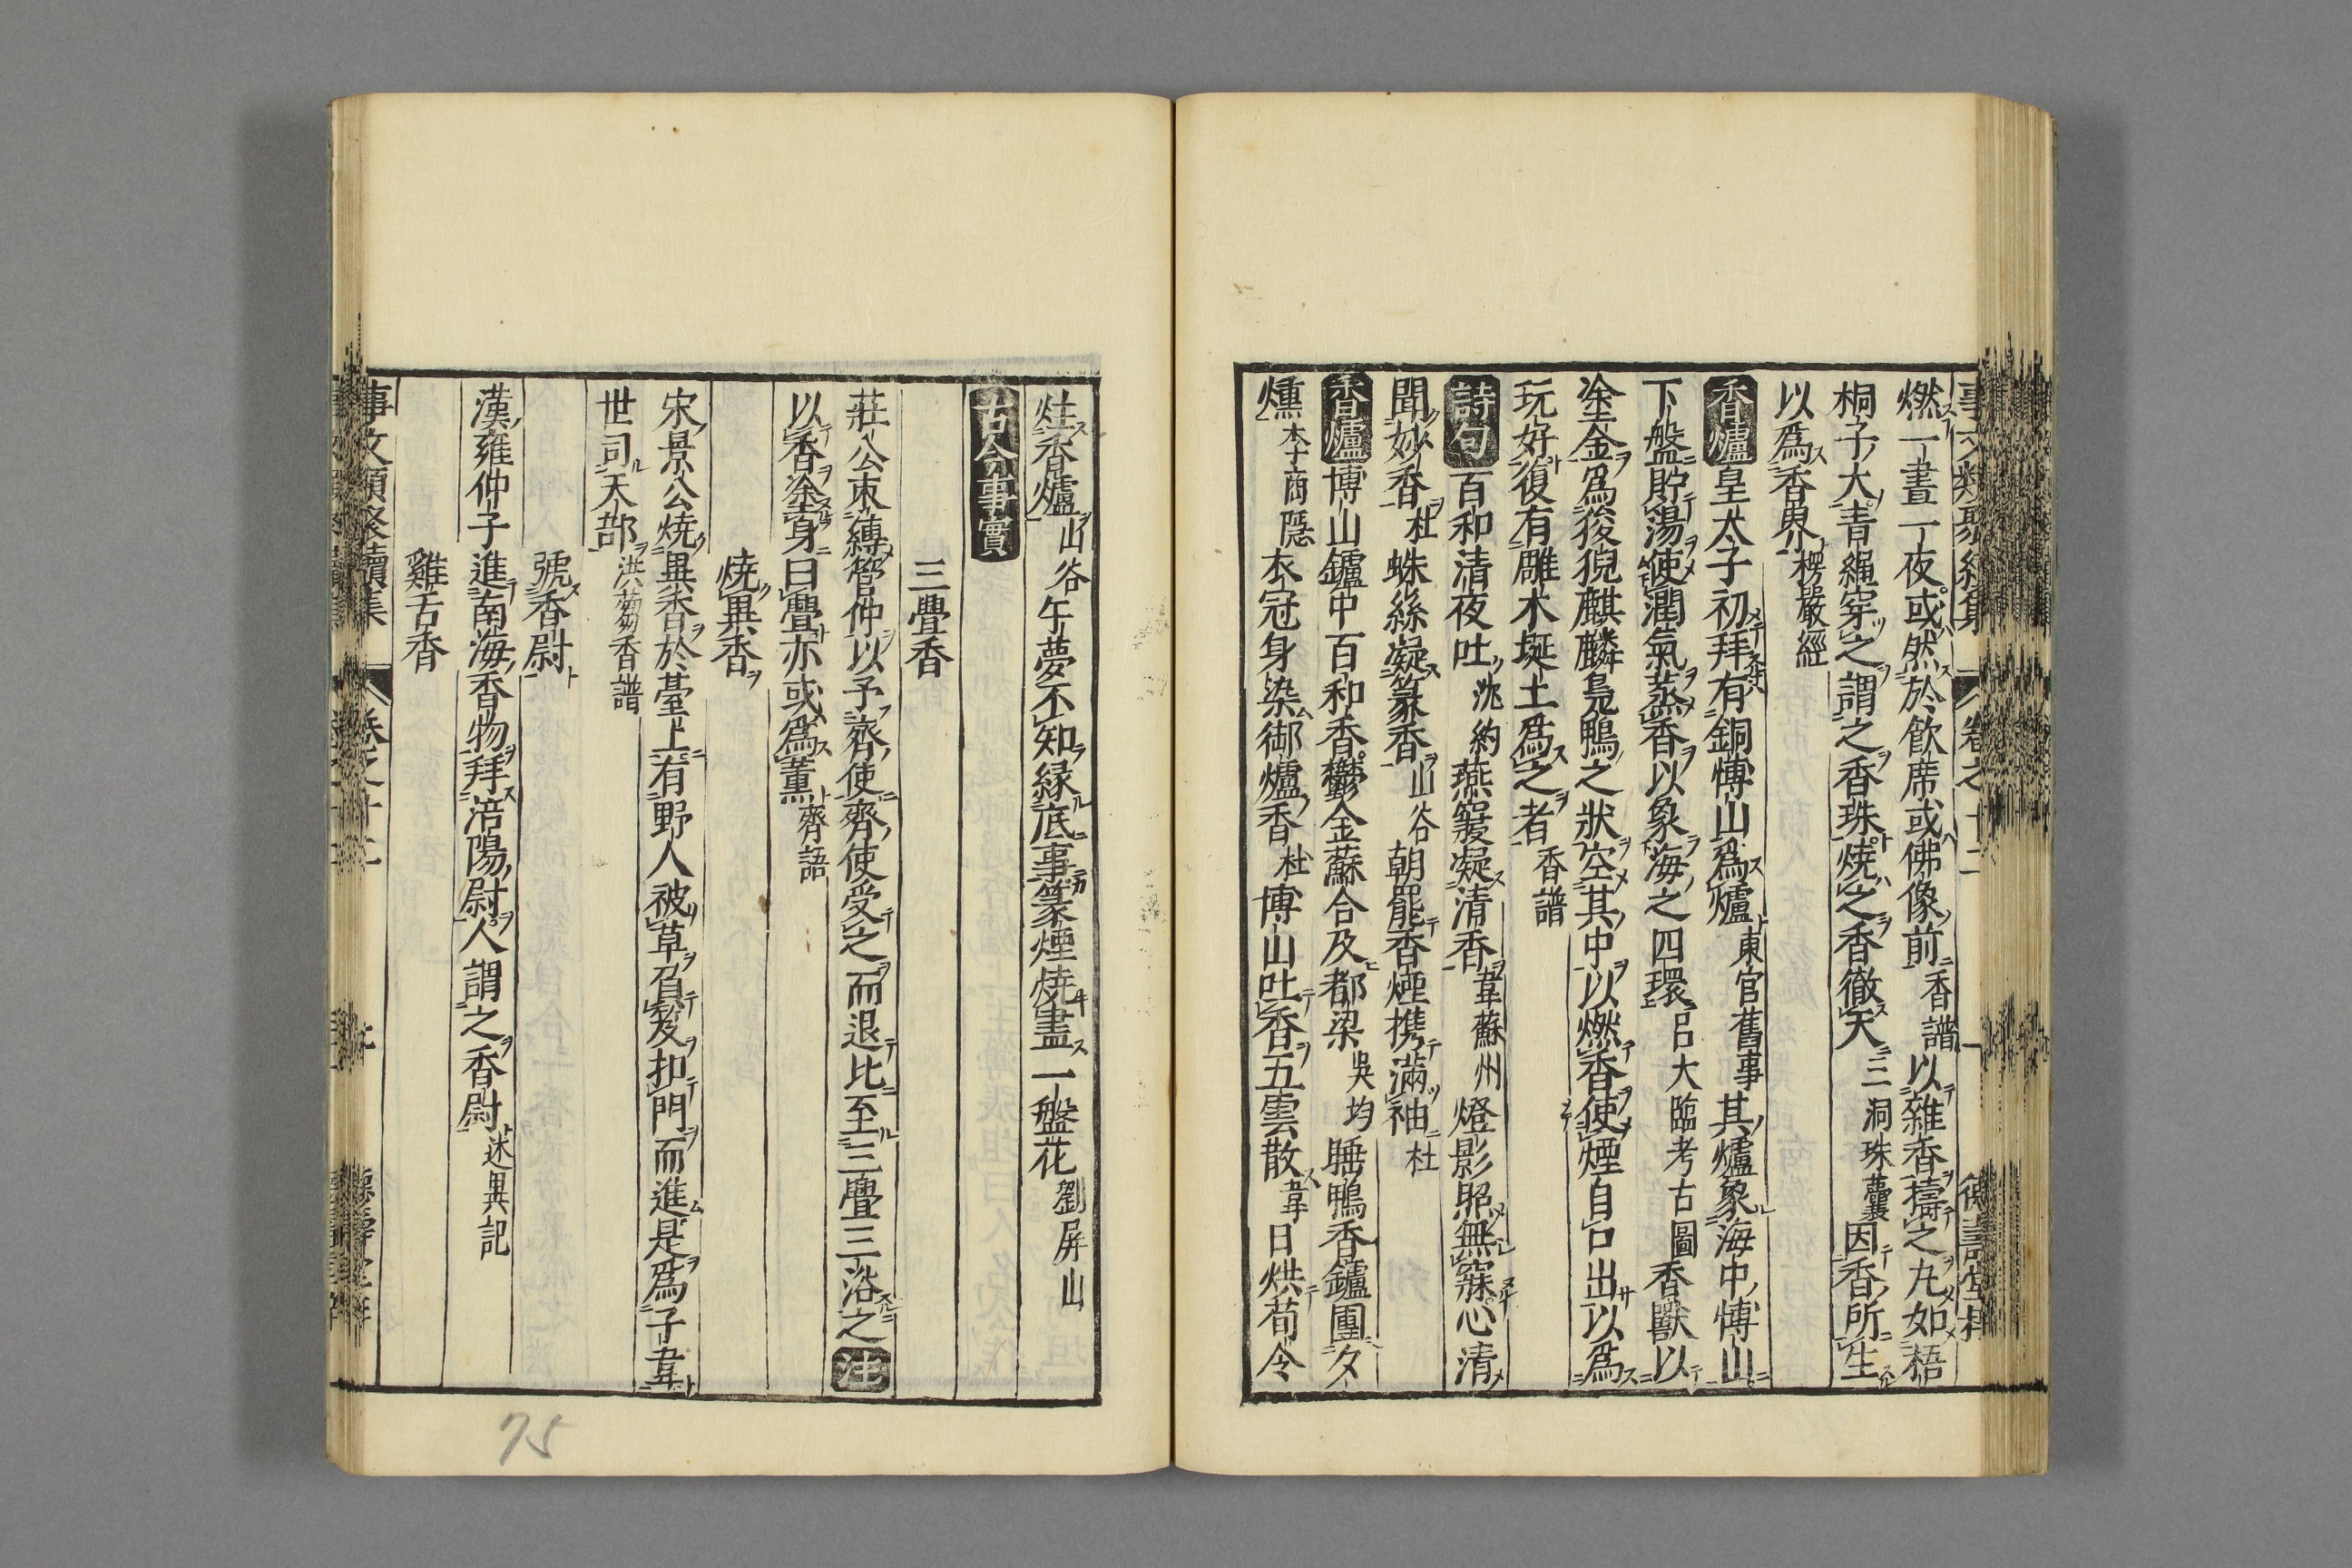 燃一晝一夜或然於飲席或佛像前香譜以雜香擣之丸如梧
桐子大青繩穿之謂之香珠焼之香徹天三洞珠囊因香所生
以爲香界楞嚴經
香爐皇太子初拜有銅博山爲爐東宮舊事其爐象海中博山
下盤貯湯使潤氣蒸香以象海之四環呂大臨考古圖香獸以
塗金爲狻猊麒麟鳧鴨之狀空其中以燃香使煙自口出以爲
玩好復有雕木埏土爲之者香譜
詩句百和清夜吐沈約燕寢凝清香韋蘇州燈影照無寐心清
聞妙香杜蛛絲凝篆香山谷朝罷香煙携滿袖杜
香爐博山鑪中百和香鬱金蘇合及都梁吳均睡鴨香鑪團夕
燻李商隱衣冠身染御爐香杜博山吐香五雲散韋日烘荀令
炷香爐山谷午夢不知縁底事篆煙焼盡一盤花劉屏山
古今事實
三疊香
莊公束縛管仲以予齊使齊使受之而退比至三疊三浴之注
以香塗身曰疊亦或爲薫齊語
焼異香
宋景公焼異香於臺上有野人被草負笈扣門而進是爲子韋
世司天部洪芻香譜
號香尉
漢雍仲子進南海香物拜涪陽尉人謂之香尉述異記
雞舌香
事文類聚續集 卷之十二
75